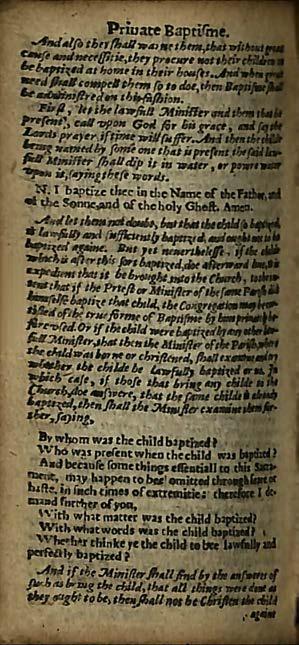 Private Baptisme.
And also they shall warne them, that without great
cause and necessitie, they procure not their children to
be baptized at home in their houses. And when great
need shall compell them so to doe, then Baptisme shall
be administred on this fashion.
First, let the lawfull Minister and them that be
present, call upon God for his grace, and say the
Lords prayer, if time will suffer. And then the childe
being named by some one that is present, the said law-
full Minister shall dip it in water, or powre water
upon it, saying these words.
N. I baptize thee in the Name of the Father, and
of the Sonne, and of the holy Ghost. Amen.
And let them not doubt, but that the child so baptized,
is lawfully and sufficiently baptized, and ought not to be
baptized againe. But yet neverthelesse, if the childe
which is after this sort baptized, doe afterward live, it is
expedient that it be brought into the Church, to the in-
tent that if the Priest or Minister of the same Parish did
himselfe baptize that child, the Congregation may be cer-
tified of the true forme of Baptisme by him privately be-
fore used. Or if the child were baptized by any other law-
full Minister, that then the Minister of the Parish, where
the child was borne or christened, shall examine and try
whether the childe be lawfully baptized or no. In
which case, if those that bring any childe to the
Church, doe answere, that the same childe is already
baptized, then shall the Minister examine them fur-
ther, saying,
By whom was the child baptized?
Who was present when the child was baptized?
And because some things essentiall to this Sacra-
ment, may happen to bee omitted through feare or
haste, in such times of extremitie: therefore I de-
mand further of you,
With what matter was the child baptized?
With what words was the child baptized?
Whether thinke ye the child to bee lawfully and
perfectly baptized?
And if the Minister shall find by the answeres of
such as bring the child, that all things were done as
they ought to be, then shall not he Christen the child
againe